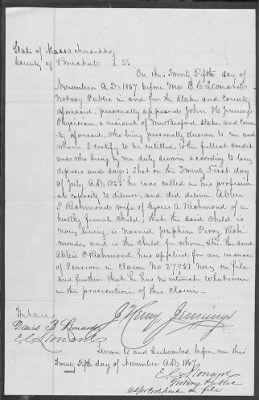 State of Massachusetts
County of Bristol S.S.
On this Twenty Fifth day of
November A.D. 1867 before me E C Leonard
Notary Public in and for the State and County
aforesaid, personally appeared John H. Jennings
Physician a resident of New Bedford State and Coun-
ty aforesaid, who being personally known to me and
whom I certify to be entitled to the fullest credit
and who being by me duly sworn according to law
deposes and says; that on the Twenty First day
of July A.D. 1855 he was called in his profession-
al capacity to deliver and did deliver Abbie
P. Richmond wife of Cyrus A Richmond of a
healthy female child; that the said child is
now living, is named Josephine Perry Rich-
mond and is the child for whom she the said
Abbie P Richmond has applied for an increase
of Pension in claim No 37,951 now on file
and further that he has no interest whatever
in the prosecution of this claim.
J Henry Jennings
David B Leonard
E C Leonard
Sworn to and subscribed before me this
Twenty Fifth day of November A.D. 1867
E C Leonard
Notary Public